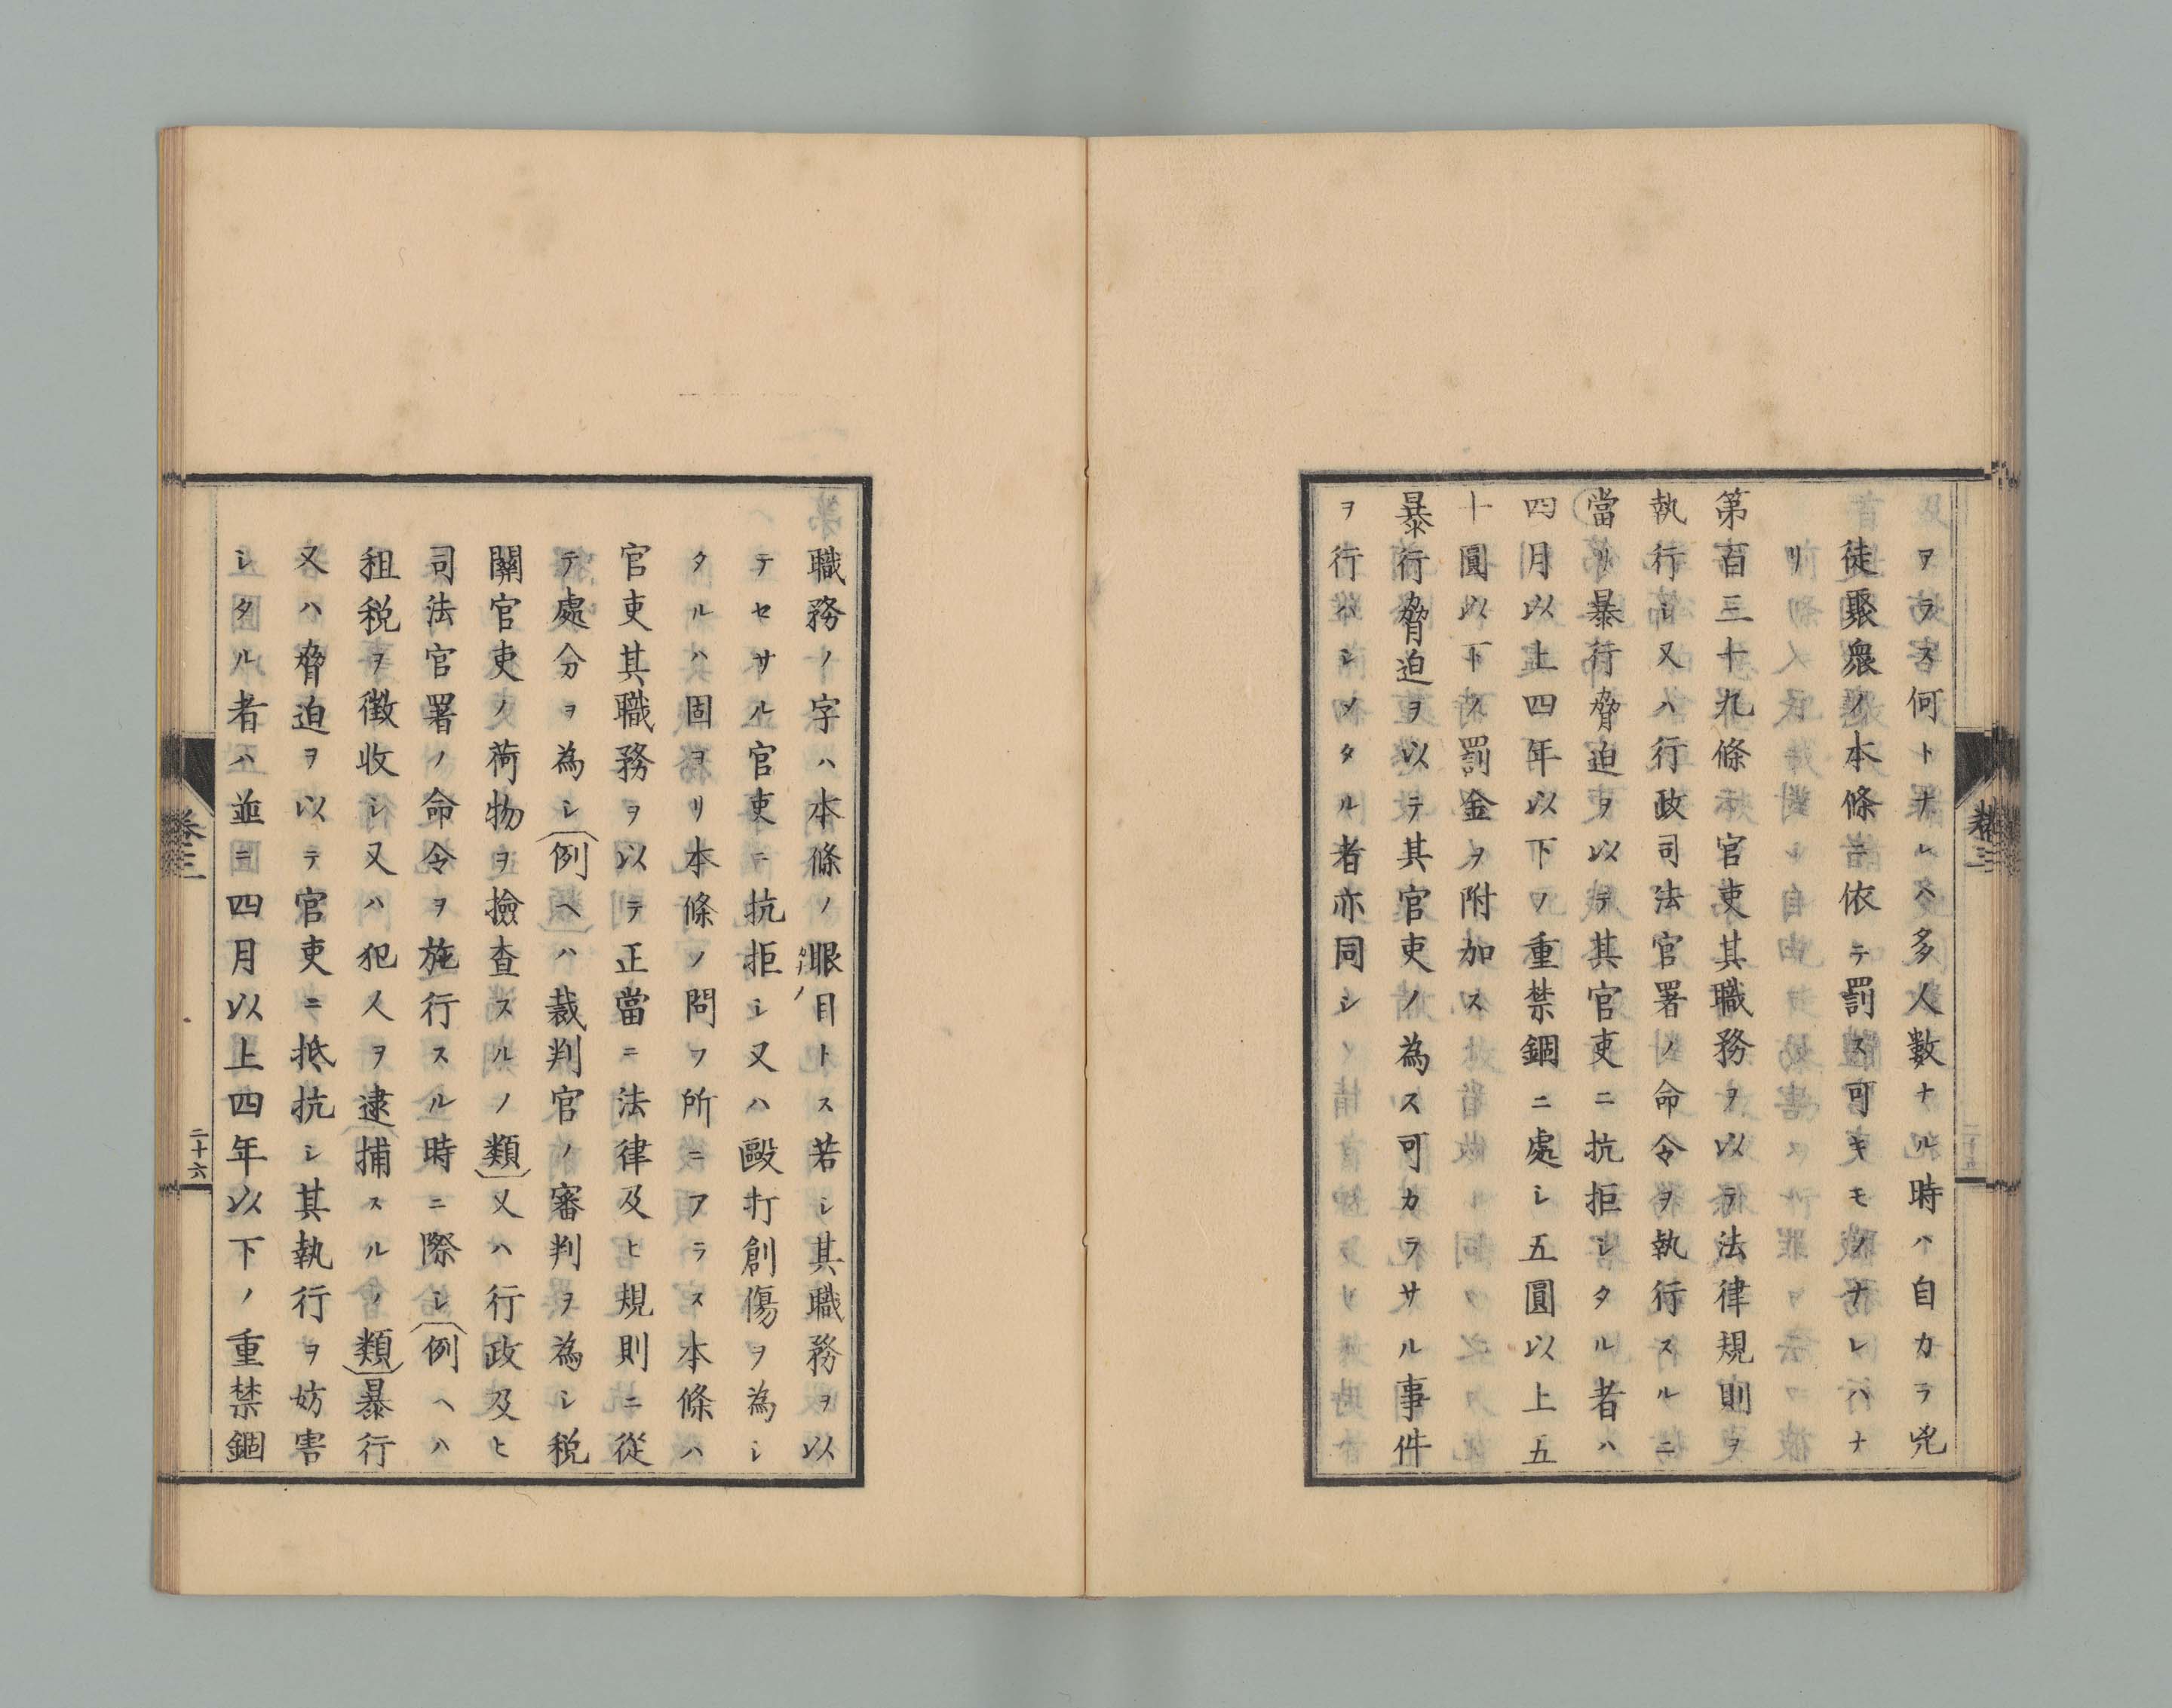 ヲラス何トナレハ多人數ナル時ハ自カラ兇
徒聚衆ノ本條ニ依テ罰ス可キモノナレハナ
リ
第百三十九條 官吏其職務ヲ以テ法律規則ヲ
執行シ又ハ行政司法官署ノ命令ヲ執行スルニ
當リ暴行脅迫ヲ以テ其官吏ニ抗拒シタル者ハ
四月以上四年以下ノ重禁錮ニ處シ五圓以上五
十圓以下ノ罰金ヲ附加ス
暴行脅迫ヲ以テ其官吏ノ為ス可カラサル事件
ヲ行ハシメタル者亦同シ
職務ノ字ハ本條ノ眼目トス若シ其職務ヲ以
テセサル官吏ニ抗拒シ又ハ毆打創傷ヲ為シ
タルハ固ヨリ本條ノ問フ所ニアラス本條ハ
官吏其職務ヲ以テ正當ニ法律及ヒ規則ニ從
テ處分ヲ為シ(例ヘハ裁判官ノ審判ヲ為シ税
關官吏ノ荷物ヲ撿査スルノ類)又ハ行政及ヒ
司法官署ノ命令ヲ施行スル時ニ際シ(例ヘハ
租税ヲ徴收シ又ハ犯人ヲ逮捕スルノ類)暴行
又ハ脅迫ヲ以テ官吏ニ抵抗シ其執行ヲ妨害
シタル者ハ並ニ四月以上四年以下ノ重禁錮
卷三
二十六